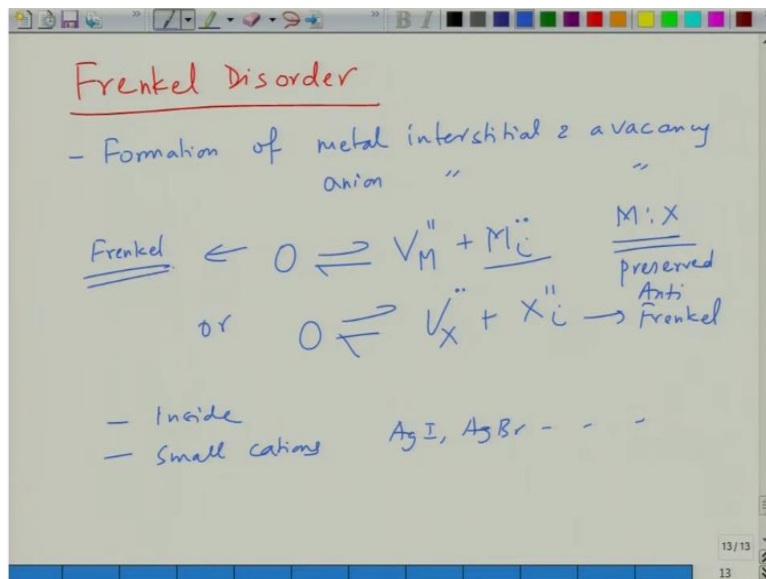 B I
Frenkel Disorder
- Formation of metal interstitial & a vacancy
anion " "
Frenkel ← O ⇌ V_M'' + M_i^¨ M:X
preserved
or O ⇌ V_X^¨ + X_i'' → Anti Frenkel
- Inside
- Small cations AgI, AgBr - - -
13/13
13